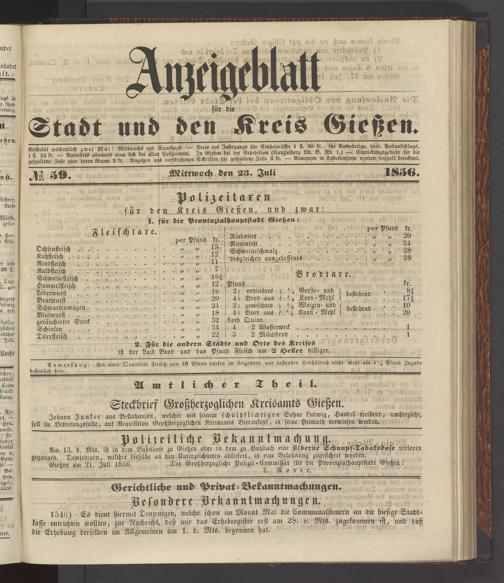 Anzeigeblatt
für die
Stadt und den Kreis Gießen.
Erscheint wöchentlich zwei Mal: Mittwochs und Samstags. — Preis des Jahrgangs für Einheimische 1 fl. 36 kr., für Auswärtige, incl. Postaufschlags,
1 fl. 53 kr. — Auswärts abonnirt man sich bei allen Postämtern. In Gießen bei der Expedition (Canzleiberg Lit. B. Nr. 1.) — Einrückungsgebühr für die
gespaltene Zeile oder deren Raum 2 kr.
№ 59.
Mittwoch den 23. Juli
1856.
Polizeitaxen
für den Kreis Gießen, und zwar:
1. für die Provinzialhauptstadt Gießen:
Fleischtaxe.
per Pfund kr.
Ochsenfleisch 15
Kuhfleisch 12
Rindfleisch 11
Kalbfleisch 7
Schweinefleisch 16½
Hammelfleisch 12
Leberwurst 16
Bratwurst 20
Schwartenmagen 24
Blutwurst 18
geräucherter Speck 32
Schinken 24
Dörrfleisch 22
per Pfund kr.
Nierenfett 24
Schweineschmalz 28
desgleichen ausgelassenes 28
Brodtaxe.
Pfund kr.
2 ordinäres Gersten- und
4 Brod aus Korn-Mehl bestehend
2 gemischtes Waizen- und 10
4 Brod aus Korn-Mehl bestehend 20
Loth Quint.
4 2 Wasserweck 1
3 2 Milchbrod 1
2. Für die andern Städte und Orte des Kreises
ist der Laib Brod und das Pfund Fleisch um 2 Heller billiger.
Anmerkung: Bei einer Quantität Fleisch von 10 Pfund dürfen im steigenden und fallenden Verhältniß nicht mehr als 1½ Pfund Zugabe
befindlich sein.
Amtlicher Theil.
Steckbrief Großherzoglichen Kreisamts Gießen.
Johann Junker aus Bellnhausen, welcher mit seinem schulpflichtigen Sohne Ludwig, Handel treibend, umherzieht,
soll im Betretungsfalle, auf Requisition Großherzoglichen Kreisamts Biedenkopf, in seine Heimath verwiesen werden.
Polizeiliche Bekanntmachung.
Am 13. d. Mts. ist in dem Bahnhofe zu Gießen oder in dem zu Butzbach eine silberne Schnupf-Tabaksdose verloren
gegangen. Demjenigen, welcher dieselbe an hier Unterzeichneten abliefert, ist eine Belohnung zugesichert worden.
Gießen am 21. Juli 1856. Der Großherzogliche Polizei-Commissär für die Provinzialhauptstadt Gießen:
Rover.
Gerichtliche und Privat-Bekanntmachungen.
Besondere Bekanntmachungen.
1546) Es dient hiermit Denjenigen, welche schon im Monat Mai die Communalsteuern an die hiesige Stadt-
kasse entrichten wollten, zur Nachricht, daß mir das Erheberegister erst am 28. v. Mts. zugekommen ist, und daß
die Erhebung derselben im Allgemeinen am 1. d. Mts. begonnen hat.